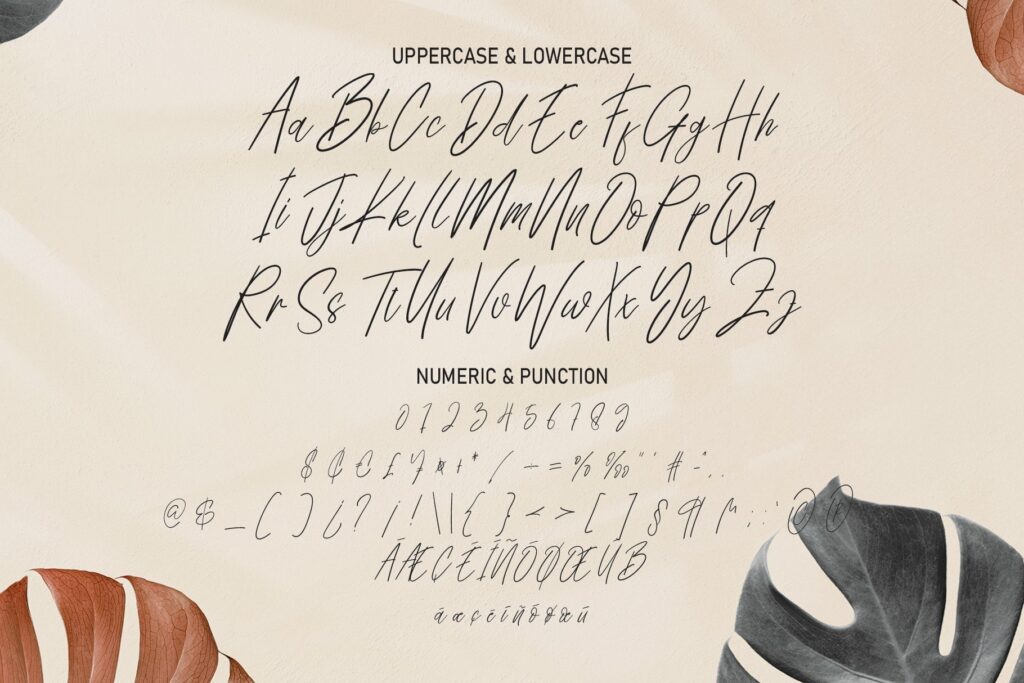 UPPERCASE & LOWERCASE
Aa Bb Cc Dd Ee Ff Gg Hh
Ii Jj Kk Ll Mm Nn Oo Pp Qq
Rr Ss Tt Uu Vv Ww Xx Yy Zz
NUMERIC & PUNCTION
0 1 2 3 4 5 6 7 8 9
$ ₵ € £ ¥ ¤ + * / ÷ = % ‰ " ' # - ~ . ,
@ $ _ ( ) ¿ ? ¡ ! \ | { } < > [ ] § ¶ : ; © ®
Á Æ Ç É Í Ñ Ó Ø Œ Ú ß
á æ ç é í ñ ó ø œ ú